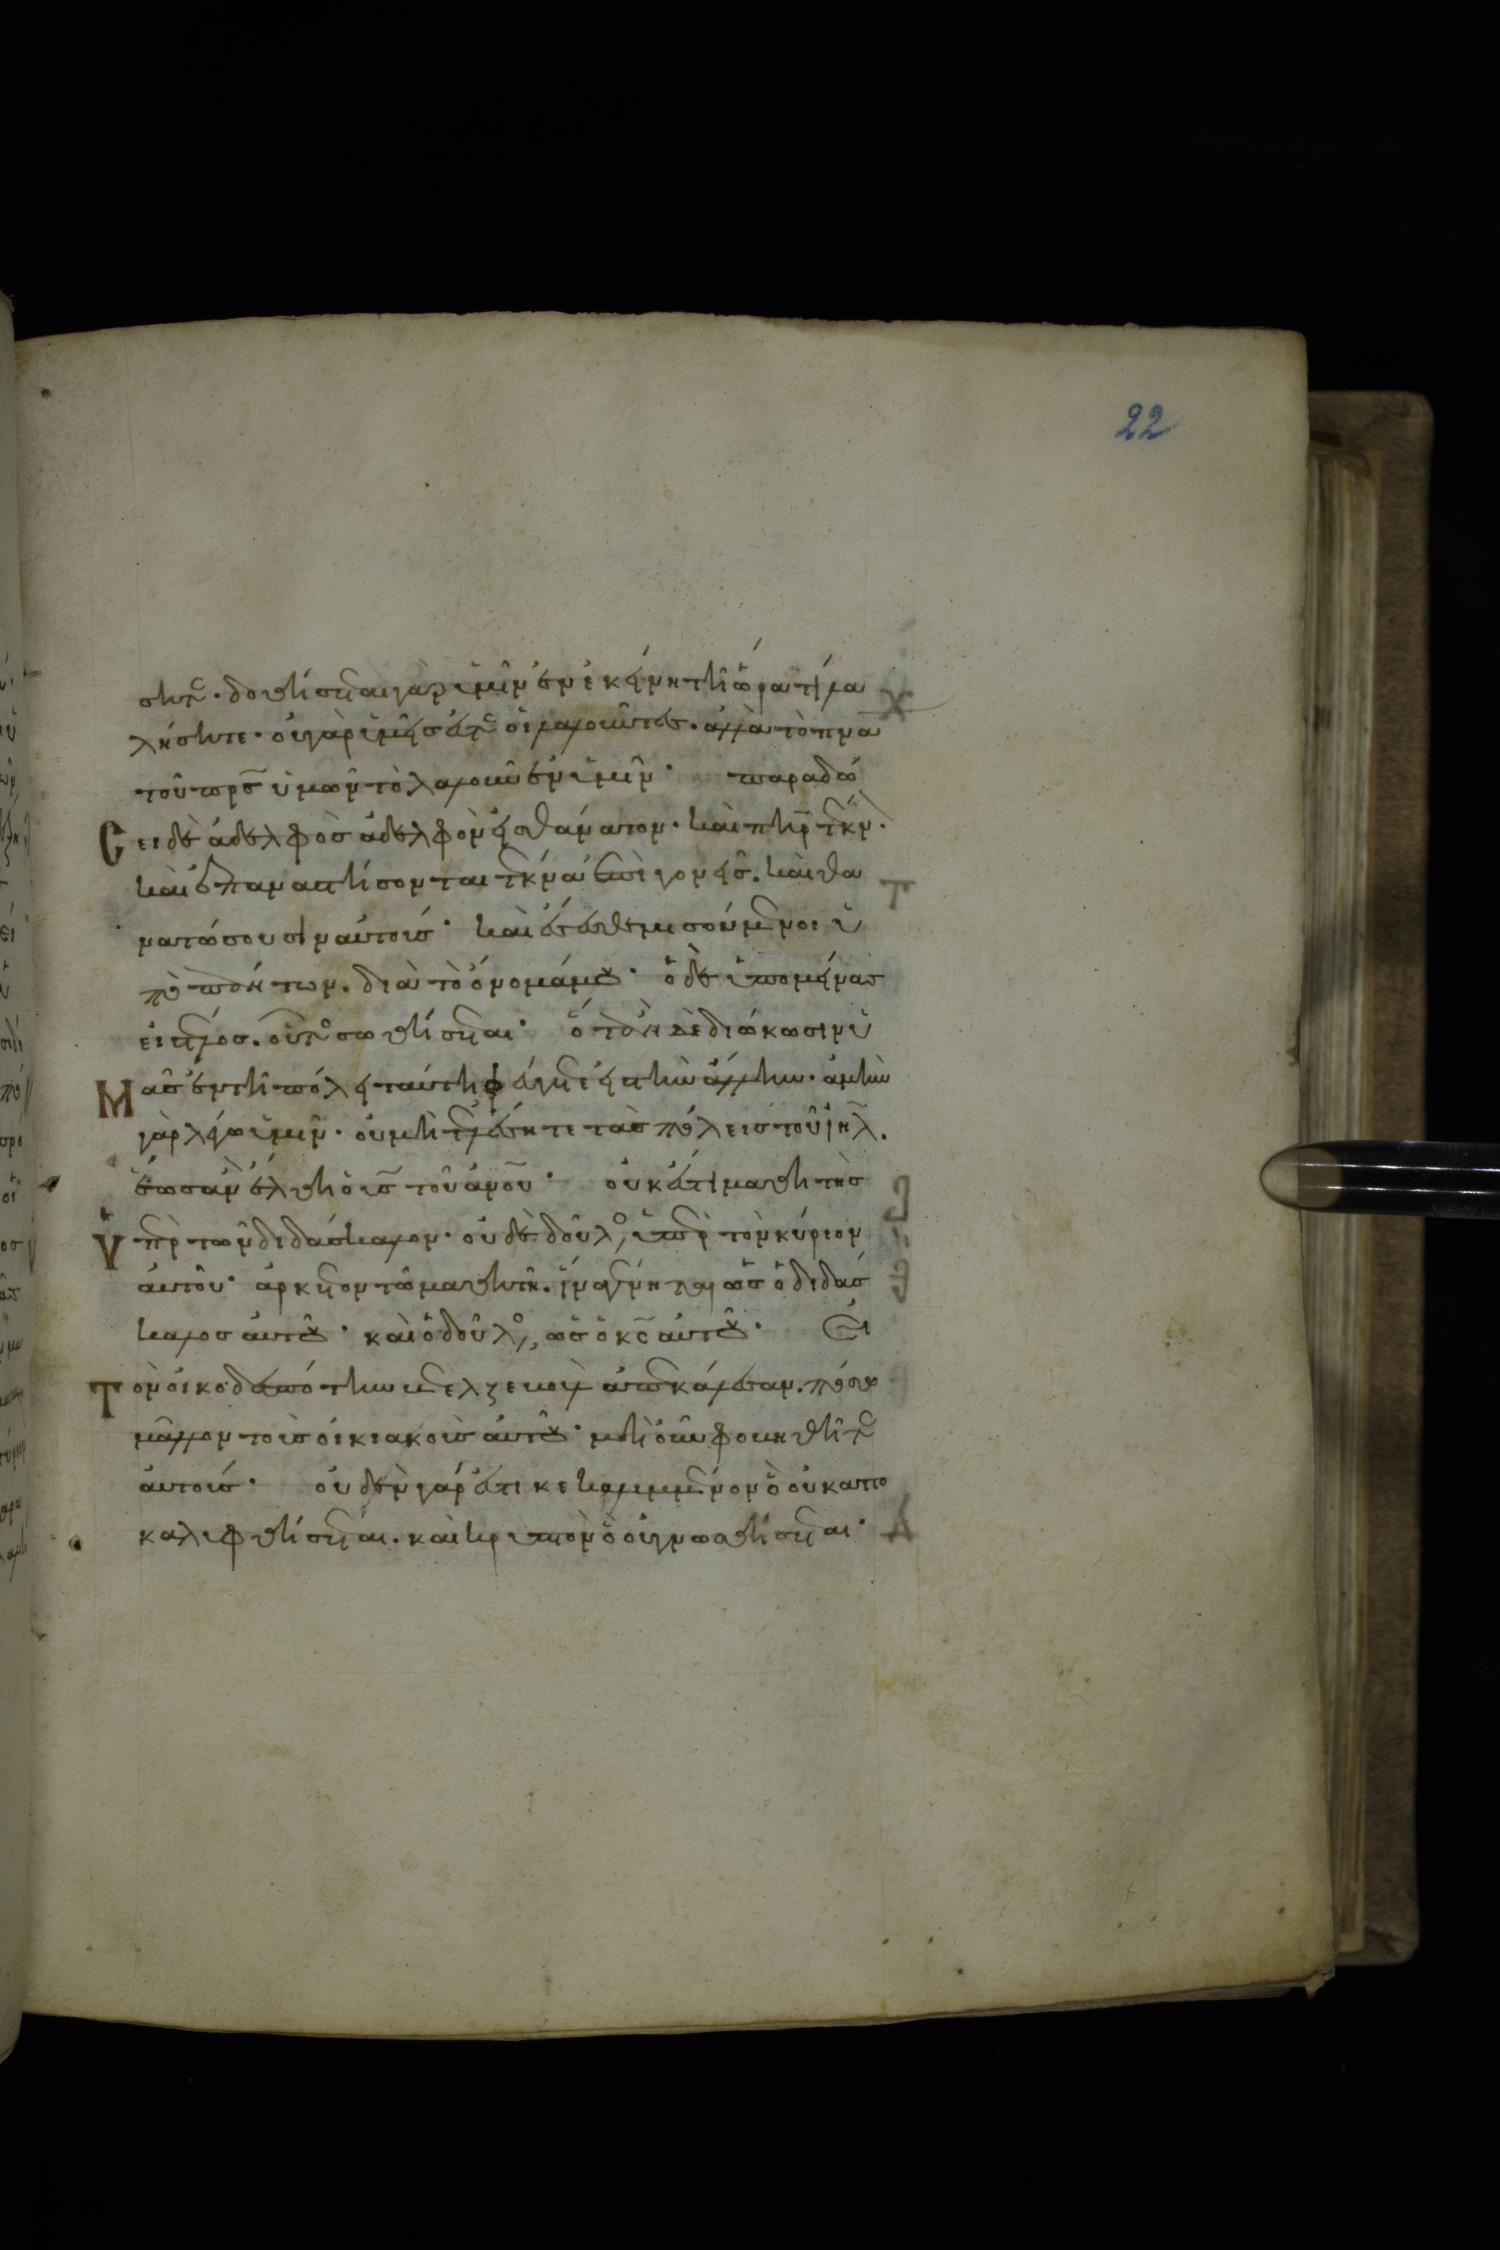 22
σητε· δοθήσεται γὰρ ὑμῖν ἐν ἐκείνη τῆ ὥρα τί λα
λήσητε· οὐ γὰρ ὑμεῖς ἐστὲ οἱ λαλοῦντες· ἀλλὰ τὸ πνα
τοῦ πρς ὑμῶν τὸ λαλοῦν ἐν ὑμῖν· παραδώ
Σει δὲ ἀδελφὸς ἀδελφὸν εἰς θάνατον· καὶ πηρ τέκν·
καὶ ἐπαναστήσονται τέκνα ἐπὶ γονεῖς· καὶ θα
νατώσουσιν αὐτούς· καὶ ἔσεσθε μισούμενοι ὑ
πὸ πάντων· διὰ τὸ ὄνομά μου· ὁ δὲ ὑπομείνας
εἰς τέλος· οὗτος σωθήσεται· ὅταν δὲ διώκωσιν ὑ
Μᾶς ἐν τῆ πόλει ταύτη φεύγετε εἰς τὴν ἄλλην· ἀμὴν
γὰρ λέγω ὑμῖν· οὐ μὴ τελέσητε τὰς πόλεις τοῦ ιηλ·
ἕως ἂν ἔλθη ὁ υς τοῦ ανου· οὐκ ἔστι μαθητὴς
Ὑπὲρ τὸν διδάσκαλον· οὐδὲ δοῦλος ὑπὲρ τὸν κύριον
αὐτοῦ· ἀρκετὸν τῶ μαθητῆ· ἵνα γένηται ὡς ὁ διδάσ
καλος αὐτοῦ· καὶ ὁ δοῦλος, ὡς ὁ κς αὐτοῦ· Εἰ
Τὸν οἰκοδεσπότην βεελζεβοὺλ ἀπεκάλεσαν· πόσω
μᾶλλον τοὺς οἰκιακοὺς αὐτοῦ· μὴ οὖν φοβηθῆτε
αὐτούς· οὐδὲν γάρ ἐστι κεκαλυμμένον ὃ οὐκ ἀπο
καλυφθήσεται· καὶ κρυπτὸν ὃ οὐ γνωσθήσεται·